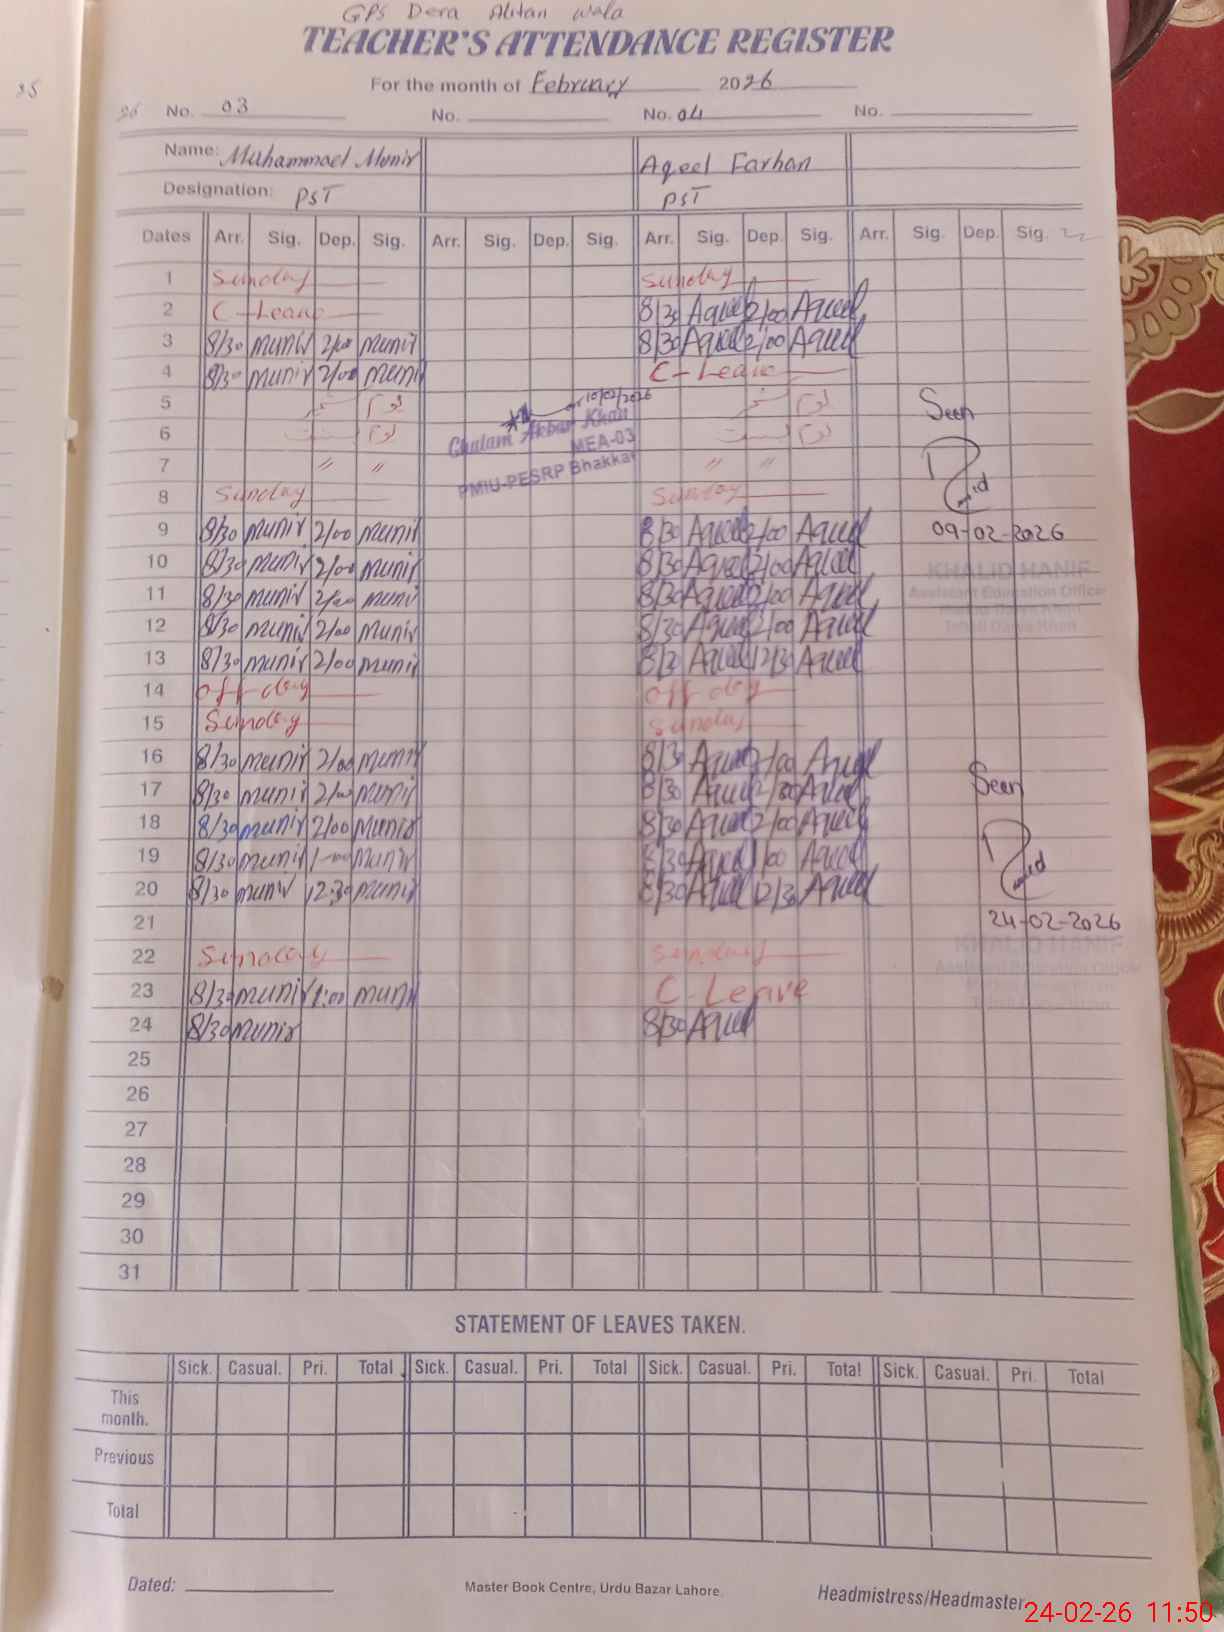 GPS Dera Alitan Wala
TEACHER'S ATTENDANCE REGISTER
For the month of February 2026
No. 03 No. No. 04 No.
Name: Muhammad Munir Aqeel Farhan
Designation: PST PST
Dates Arr. Sig. Dep. Sig. Arr. Sig. Dep. Sig. Arr. Sig. Dep. Sig. Arr. Sig. Dep. Sig.
1 Sunday Sunday
2 C-Leave 8/30 Aqeel 2/00 Aqeel
3 8/30 munir 2/00 munir 8/30 Aqeel 2/00 Aqeel
4 8/30 munir 2/00 munir C-Leave
10/02/2026
5 یوم یوم Seen
Ghulam Akbar Khan
6 یوم یوم
MEA-03
7 〃 〃 〃 〃
PMIU-PESRP Bhakkar
8 Sunday Sunday
9 8/30 munir 2/00 munir 8/30 Aqeel 2/00 Aqeel 09-02-2026
10 8/30 munir 2/00 munir 8/30 Aqeel 2/00 Aqeel
KHALID HANIF
11 8/30 munir 2/00 munir 8/30 Aqeel 2/00 Aqeel
Assistant Education Officer
12 8/30 munir 2/00 munir 8/30 Aqeel 2/00 Aqeel
13 8/30 munir 2/00 munir 8/30 Aqeel 12/30 Aqeel
14 off day off day
15 Sunday Sunday
16 8/30 munir 2/00 munir 8/30 Aqeel 2/00 Aqeel
17 8/30 munir 2/00 munir 8/30 Aqeel Aqeel Seen
18 8/30 munir 2/00 munir 8/30 Aqeel 2/00 Aqeel
19 8/30 munir 1-00 munir 8/30 Aqeel 1/00 Aqeel
20 8/30 munir 12:30 munir 8/30 Aqeel 12/30 Aqeel
21 24-02-2026
KHALID HANIF
22 Sunday Sunday
23 8/30 munir 1:00 munir C-Leave
24 8/30 munir 8/30 Aqeel
25
26
27
28
29
30
31
STATEMENT OF LEAVES TAKEN.
Sick. Casual. Pri. Total Sick. Casual. Pri. Total Sick. Casual. Pri. Total Sick. Casual. Pri. Total
This month.
Previous
Total
Dated: Master Book Centre, Urdu Bazar Lahore. Headmistress/Headmaster
24-02-26 11:50